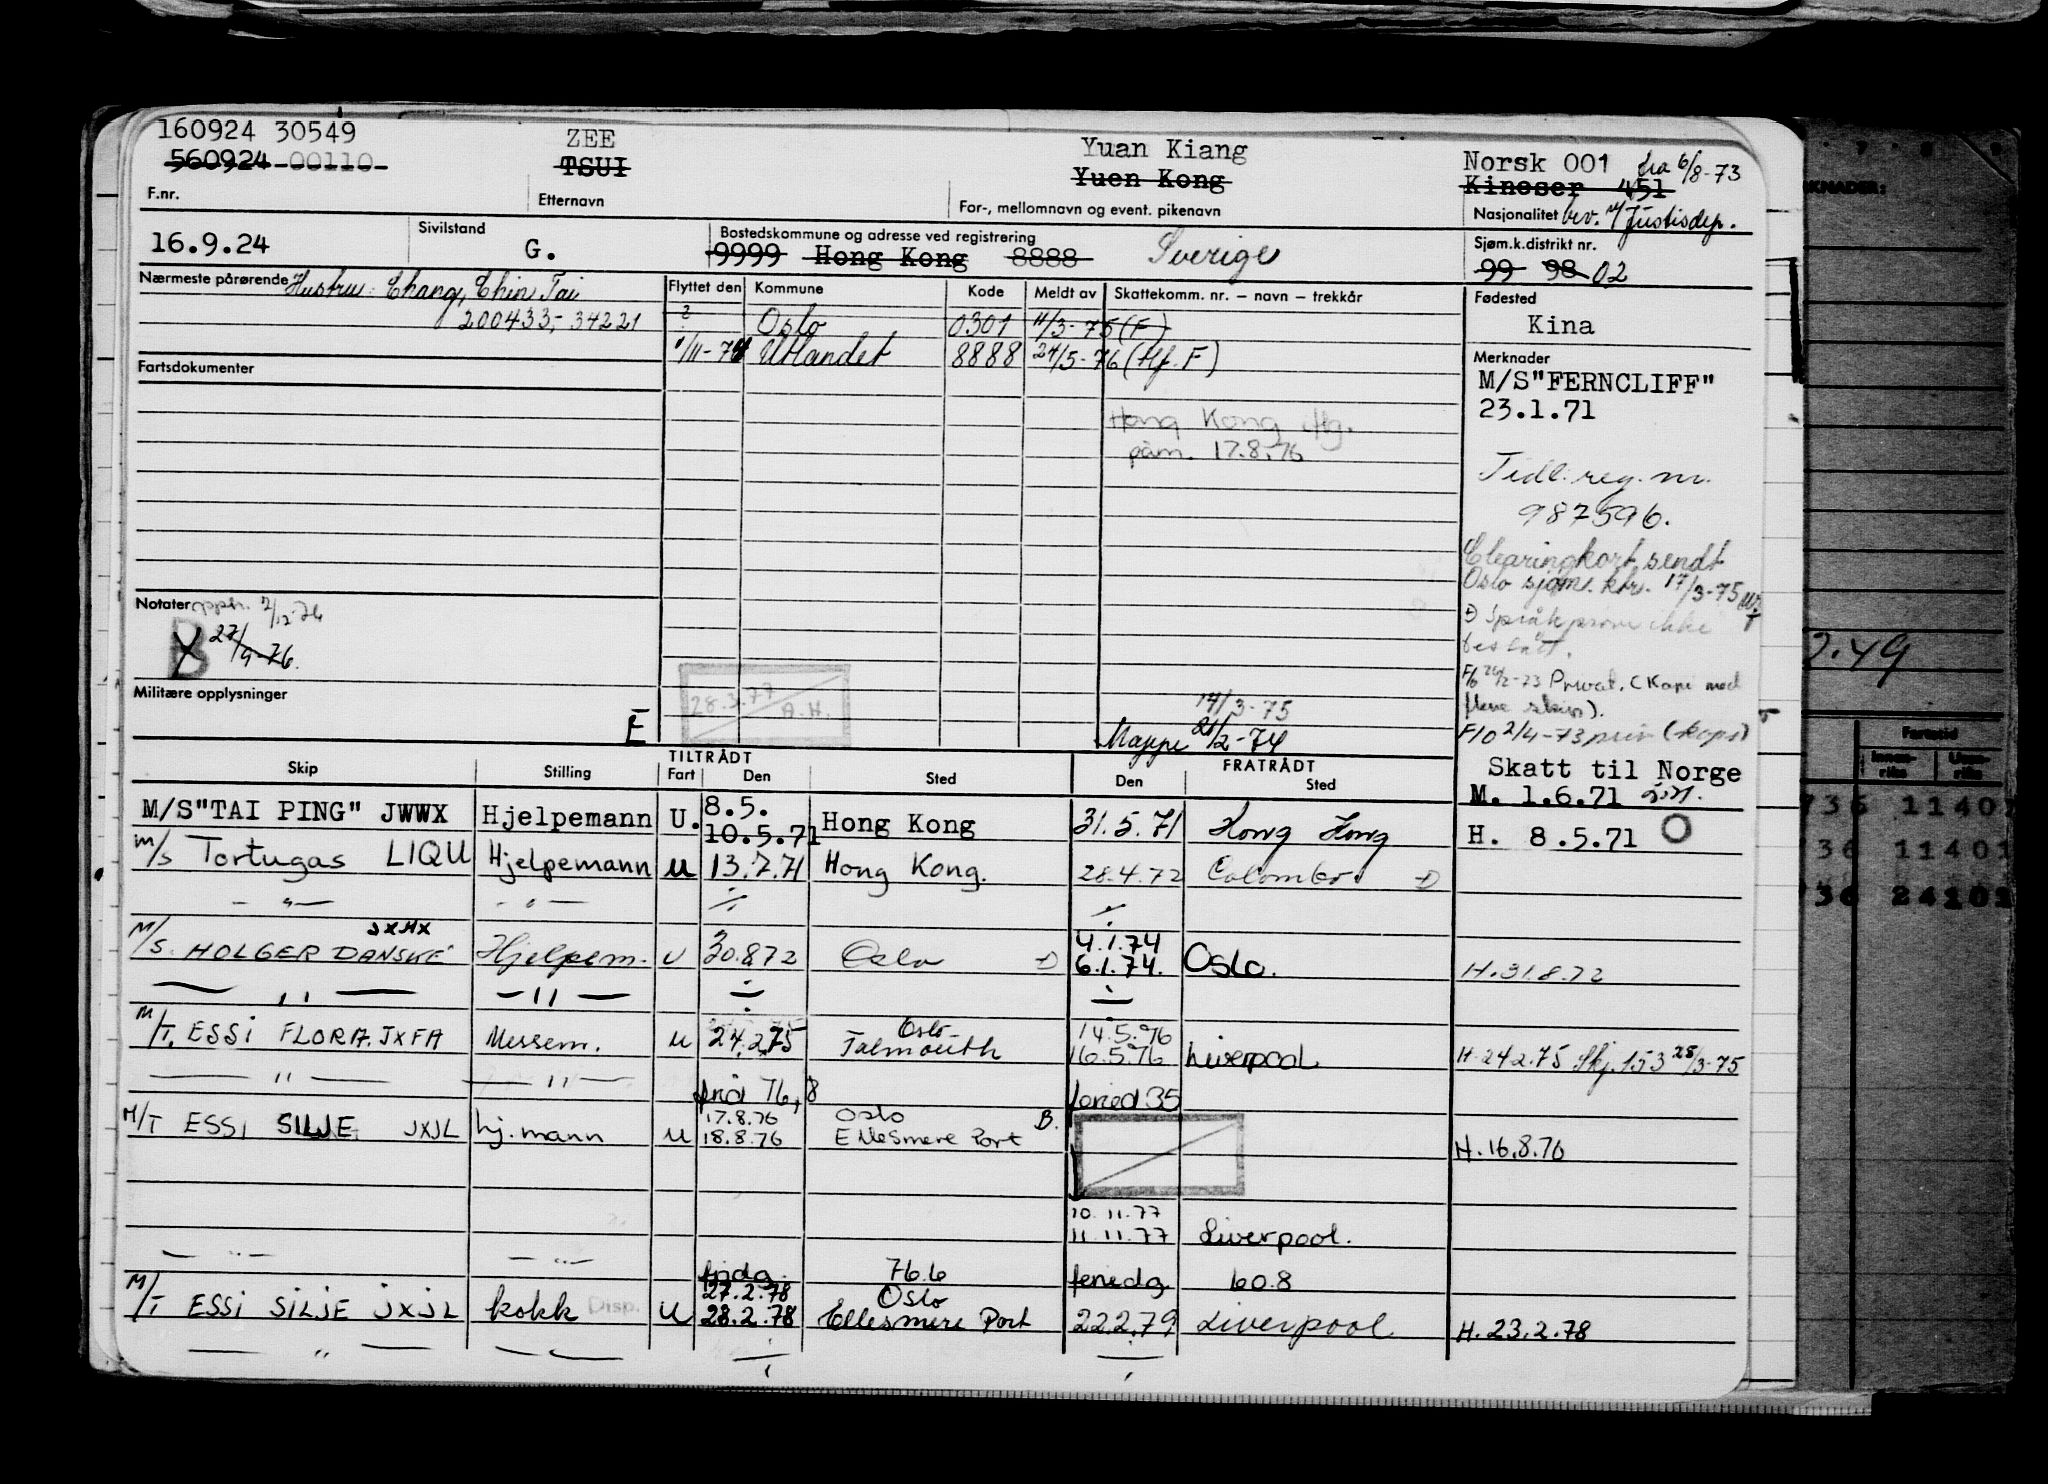 160924 30549 ZEE Yuan Kiang Norsk 001 fra 6/8-73
560924 00110 TSUI Yuen Kong Kineser 451
F.nr. Etternavn For-, mellomnavn og event. pikenavn Nasjonalitet bev. Justisdep.
16.9.24 Sivilstand G. Bostedskommune og adresse ved registrering Sjøm.k.distrikt nr.
9999 Hong Kong 8888 Sverige 99 98 02
Nærmeste pårørende Hustru: Chang, Chin Tai Flyttet den Kommune Kode Meldt av Skattekomm. nr. – navn – trekkår Fødested
200433,- 34221 ? Oslo 0301 11/3-75 (F) Kina
1/11-74 Utlandet 8888 24/5-76 (tlf. F) Merknader
Fartsdokumenter M/S"FERNCLIFF"
23.1.71
Hong Kong
påm. 17.8.76
Tidl. reg. nr.
987596.
Clearingkort sendt
Oslo sjøm. ktr. 17/3-75
Notater 7/12-76
B 27/9-76.
Språkprøve ikke
bestått.
Militære opplysninger
28.3.77 A.H.
E
Privat. (Kapi med
flere skip).
14/3-75
Mappe 21/2-74
F/0 2/4-73 priv (kopi)
TILTRÅDT FRATRÅDT
Skip Stilling Fart Den Sted Den Sted
Skatt til Norge
M. 1.6.71
M/S"TAI PING" JWWX Hjelpemann U. 8.5. 10.5.71 Hong Kong 31.5.71 Hong Kong H. 8.5.71
M/S Tortugas LIQU Hjelpemann U 13.7.71 Hong Kong. 28.4.72 Colombo.
— " — — " —
M/S. HOLGER DANSKE JXMX Hjelpem. U 30.8.72 Oslo 4.1.74 6.1.74. Oslo. H.31.8.72
— " — — " —
M/T. ESSI FLORA. JXFA Messem. U 24.2.75 Oslo- Falmouth 14.5.76 16.5.76 Liverpool H.24.2.75 Skj. 153 25/3-75
— " — — " — frid 76,8 feried 35
M/T ESSI SILJE JXJL hj.mann U 17.8.76 18.8.76 Oslo Ellesmere Port B. H.16.8.76
10.11.77
11.11.77 Liverpool.
— " — — " — fridg. 76.6 feriedg 60.8
M/T ESSI SILJE JXJL kokk Disp. U 27.2.78 28.2.78 Oslo Ellesmere Port 22.2.79 Liverpool H.23.2.78
— " —
KNADER:
2.49
Fartstid
Innen-riks Uten-riks
736 11401
736 11401
736 24101